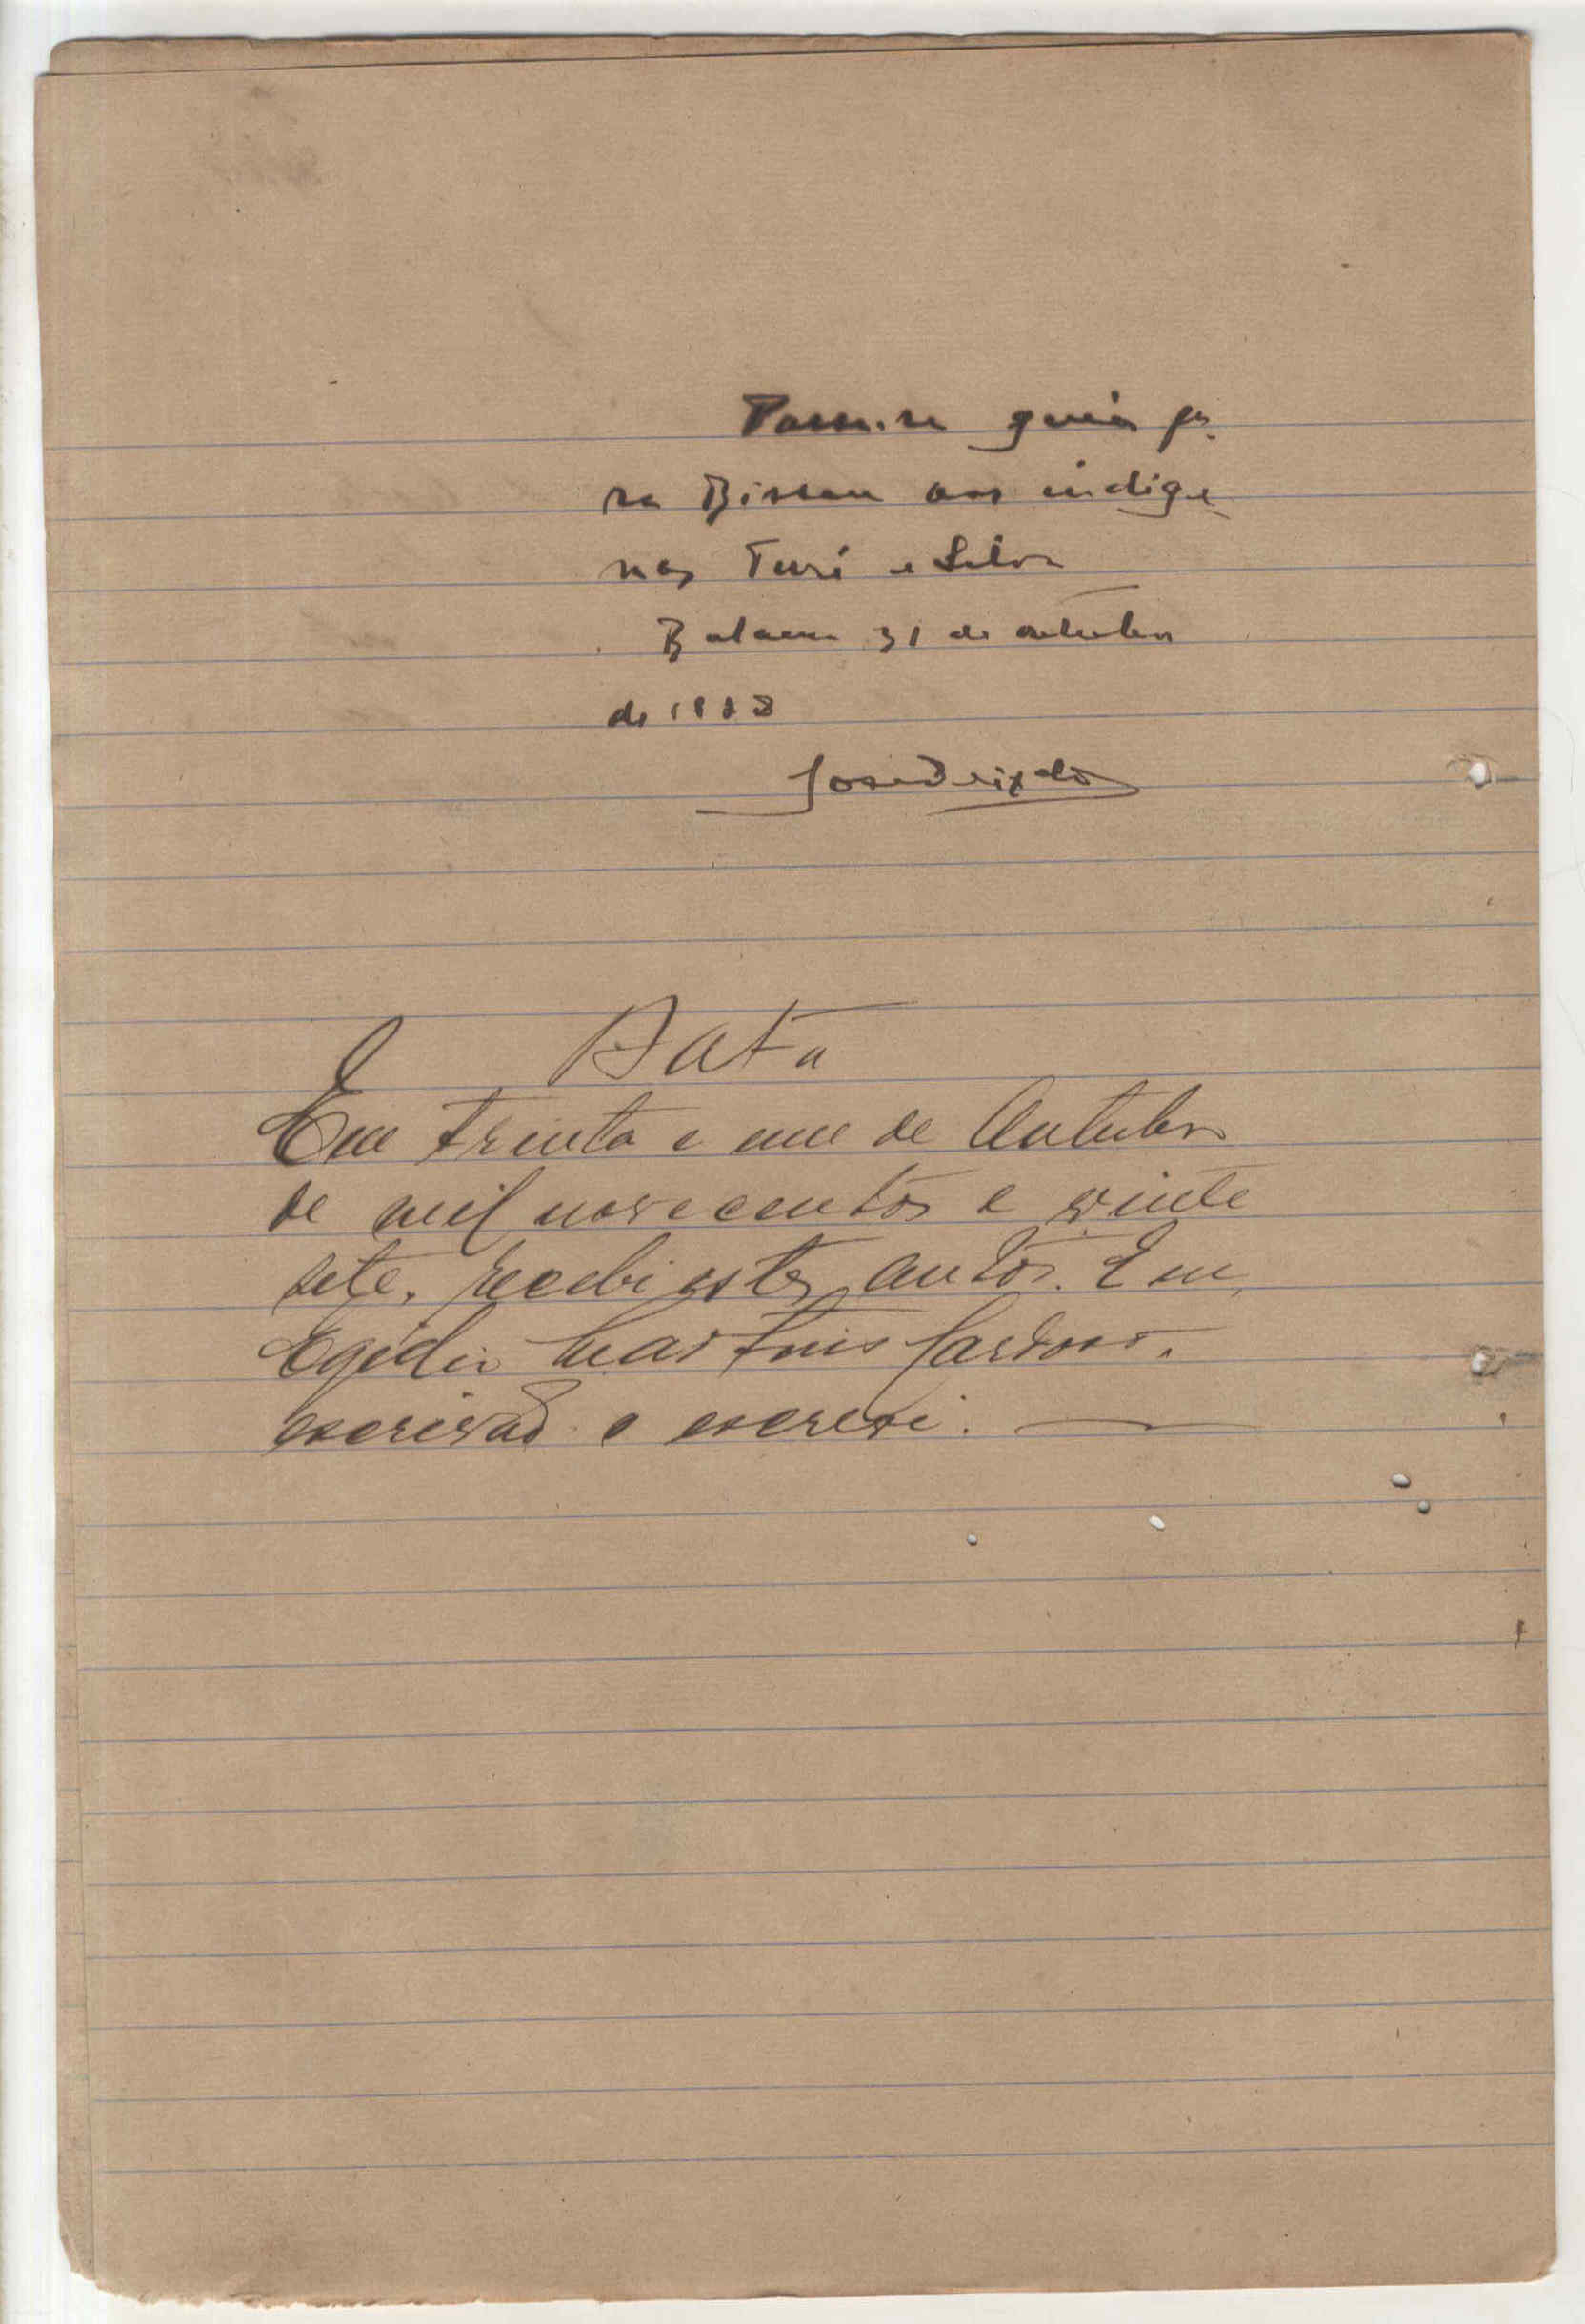 Passe-se guia pa-
ra Bissau aos indige-
nas Turé e
Bolama 31 de outubro
de 1928
José Peixoto
Data
Em trinta e um de Outubro
de mil novecentos e vinte
sete, recebi estes autos. Eu,
Egidio Martins Cardoso,
escrivão o escrevi.